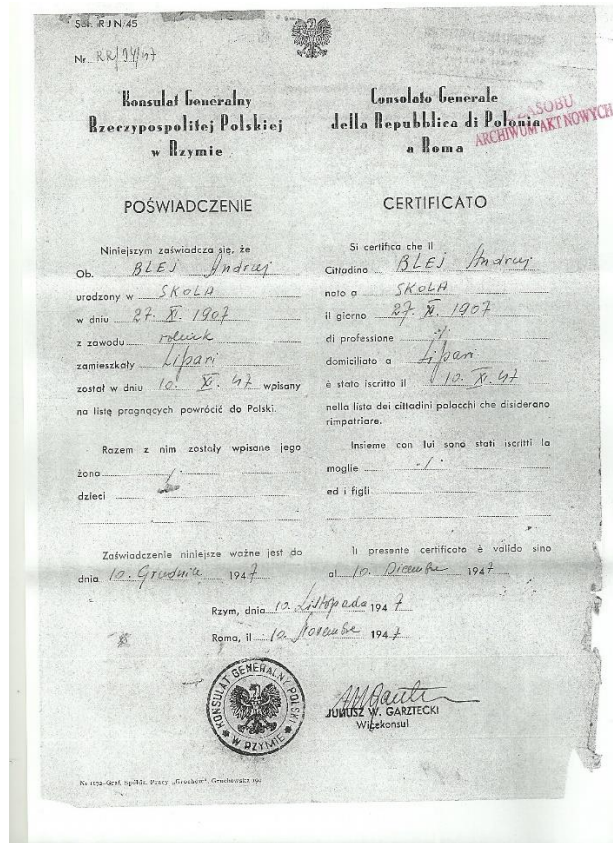 Ser. RJN/45
Nr. RR/94/47
Z ZASOBU
ARCHIWUM AKT NOWYCH
Konsulat Generalny
Rzeczypospolitej Polskiej
w Rzymie
POŚWIADCZENIE
Niniejszym zaświadcza się, że
Ob. BLEJ Andrzej
urodzony w SKOLA
w dniu 27. XI. 1907
z zawodu rolnik
zamieszkały Lipari
został w dniu 10. XI. 47 wpisany
na listę pragnących powrócić do Polski.
Razem z nim zostały wpisane jego
żona ./.
dzieci
Zaświadczenie niniejsze ważne jest do
dnia 10. Grudnia 1947
Consolato Generale
della Repubblica di Polonia
a Roma
CERTIFICATO
Si certifica che il
Cittadino BLEJ Andrzej
nato a SKOLA
il giorno 27. XI. 1907
di professione ./.
domiciliato a Lipari
è stato iscritto il 10. XI. 47
nella lista dei cittadini polacchi che disiderano
rimpatriare.
Insieme con lui sono stati iscritti la
moglie ./.
ed i figli
Il presente certificato è valido sino
al 10. Dicembre 1947
Rzym, dnia 10. Listopada 1947
Roma, il 10. Novembre 1947
KONSULAT GENERALNY POLSKI
W RZYMIE
JULIUSZ W. GARZTECKI
Wicekonsul
Graf. Spółdz. Pracy „Grochów", Grochowska